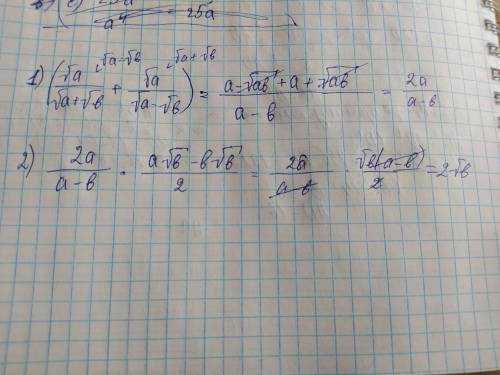 1) (√a/(√a+√b)^(√a-√b) + √a/(√a-√b)^(√a+√b)) = (a-√ab+a+√ab)/(a-b) = 2a/(a-b)
2) 2a/(a-b) · (a√b-b√b)/2 = 2a/(a-b) · √b(a-b)/2 = 2√b